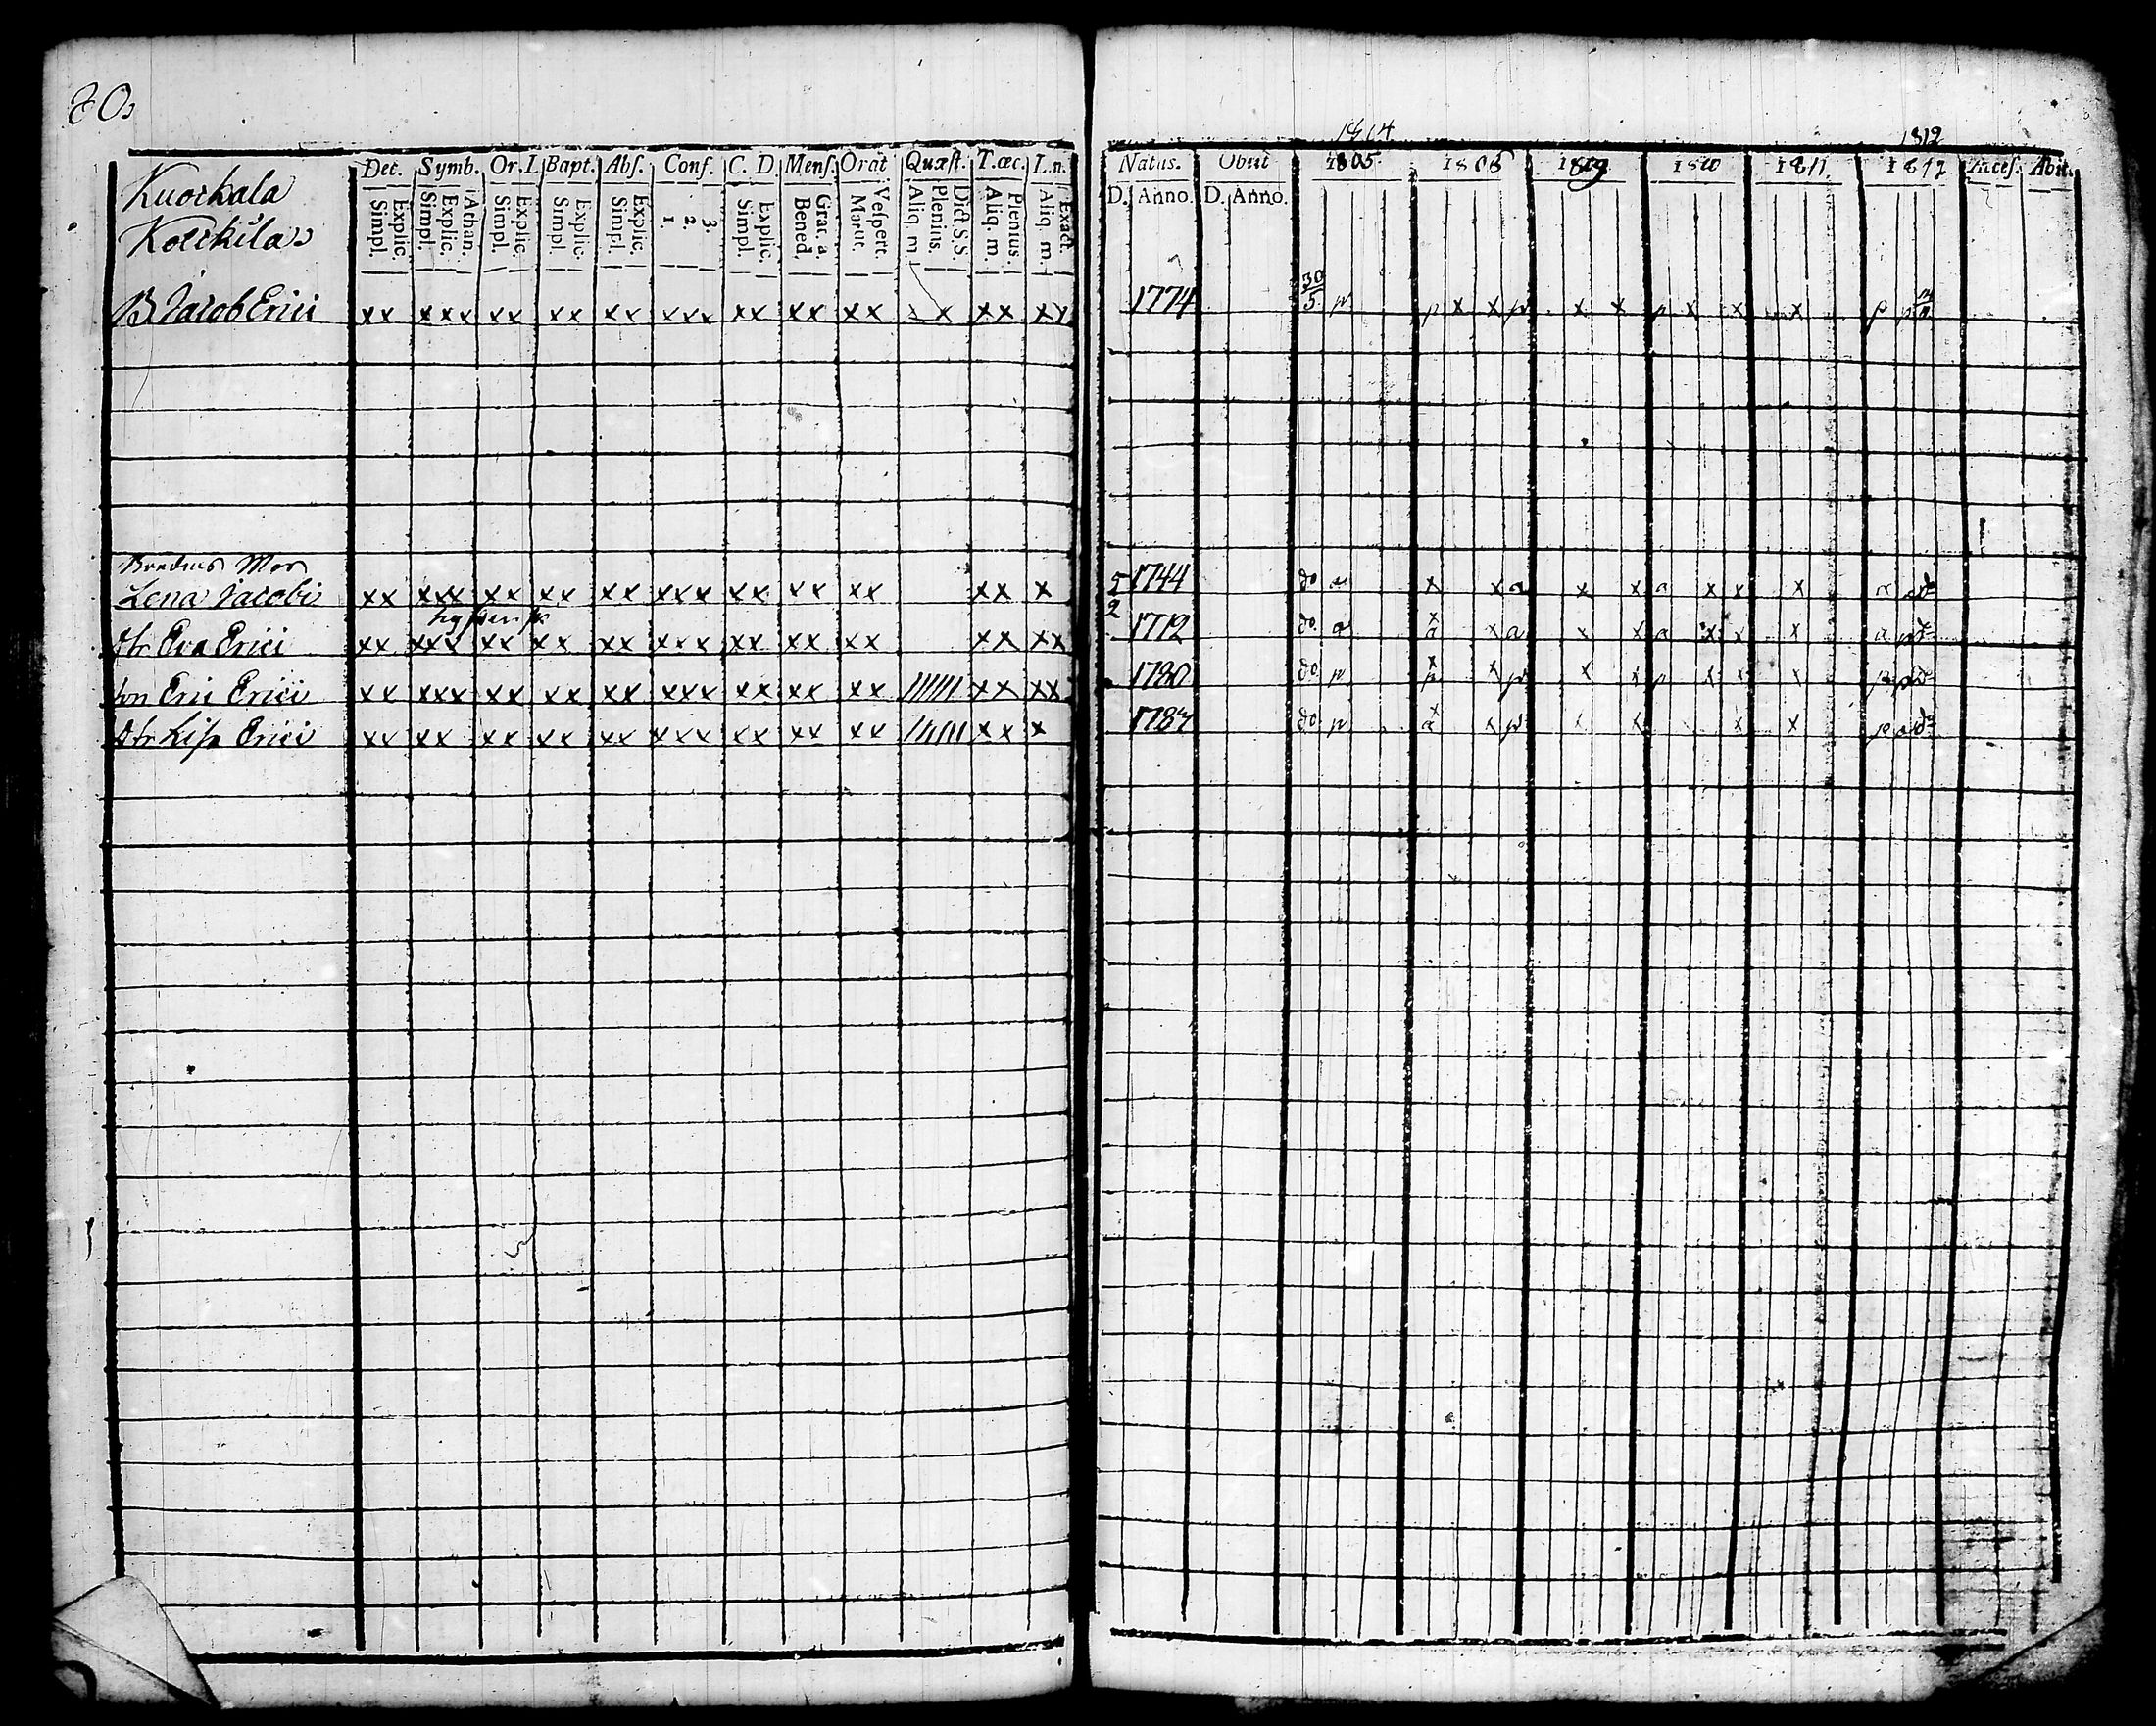 80.
Kuorkala
Kolckila
Dec. Symb. Or. L Bapt. Abſ. Conf. C. D. Menſ. Orat Quæſt. T. œc. L. n.
Explic. Simpl. Athan. Explic. Simpl. Explic. Simpl. Explic. Simpl. Explic. Simpl. 3. 2. 1. Explic. Simpl. Grat. a. Bened. Veſpert. Matut. Dict. S. S. Plenius. Aliq. m. Plenius. Aliq. m. Exact. Aliq. m.
1812
Natus. Obiit 1805. 1808 1809 1810 1811. 1812 Acceſ. Abit.
D. Anno. D. Anno.
B Jacob Erici xx xxx xx xx xx xxx xx xx xx x x xx xx 1774 30/5. p p x x p x x p x x x p p
Bredius Mor
Lena Jacobi xx xxx xx xx xx xxx xx xx xx xx x 5 1744 do a x x a x x a x x x a a do
2
dtr Eva Erici xx xxx xx xx xx xxx xx xx xx xx xx 1772 do. a x a x a x x a x x x a p do
son Eric Erici xx xxx xx xx xx xxx xx xx xx ////// xx xx 1780 do. p x p x p x x p x x x p p do
dtr Lisa Erici xx xx xx xx xx xxx xx xx xx ////// xx x 1787 do. p x a x p x x x x p a do